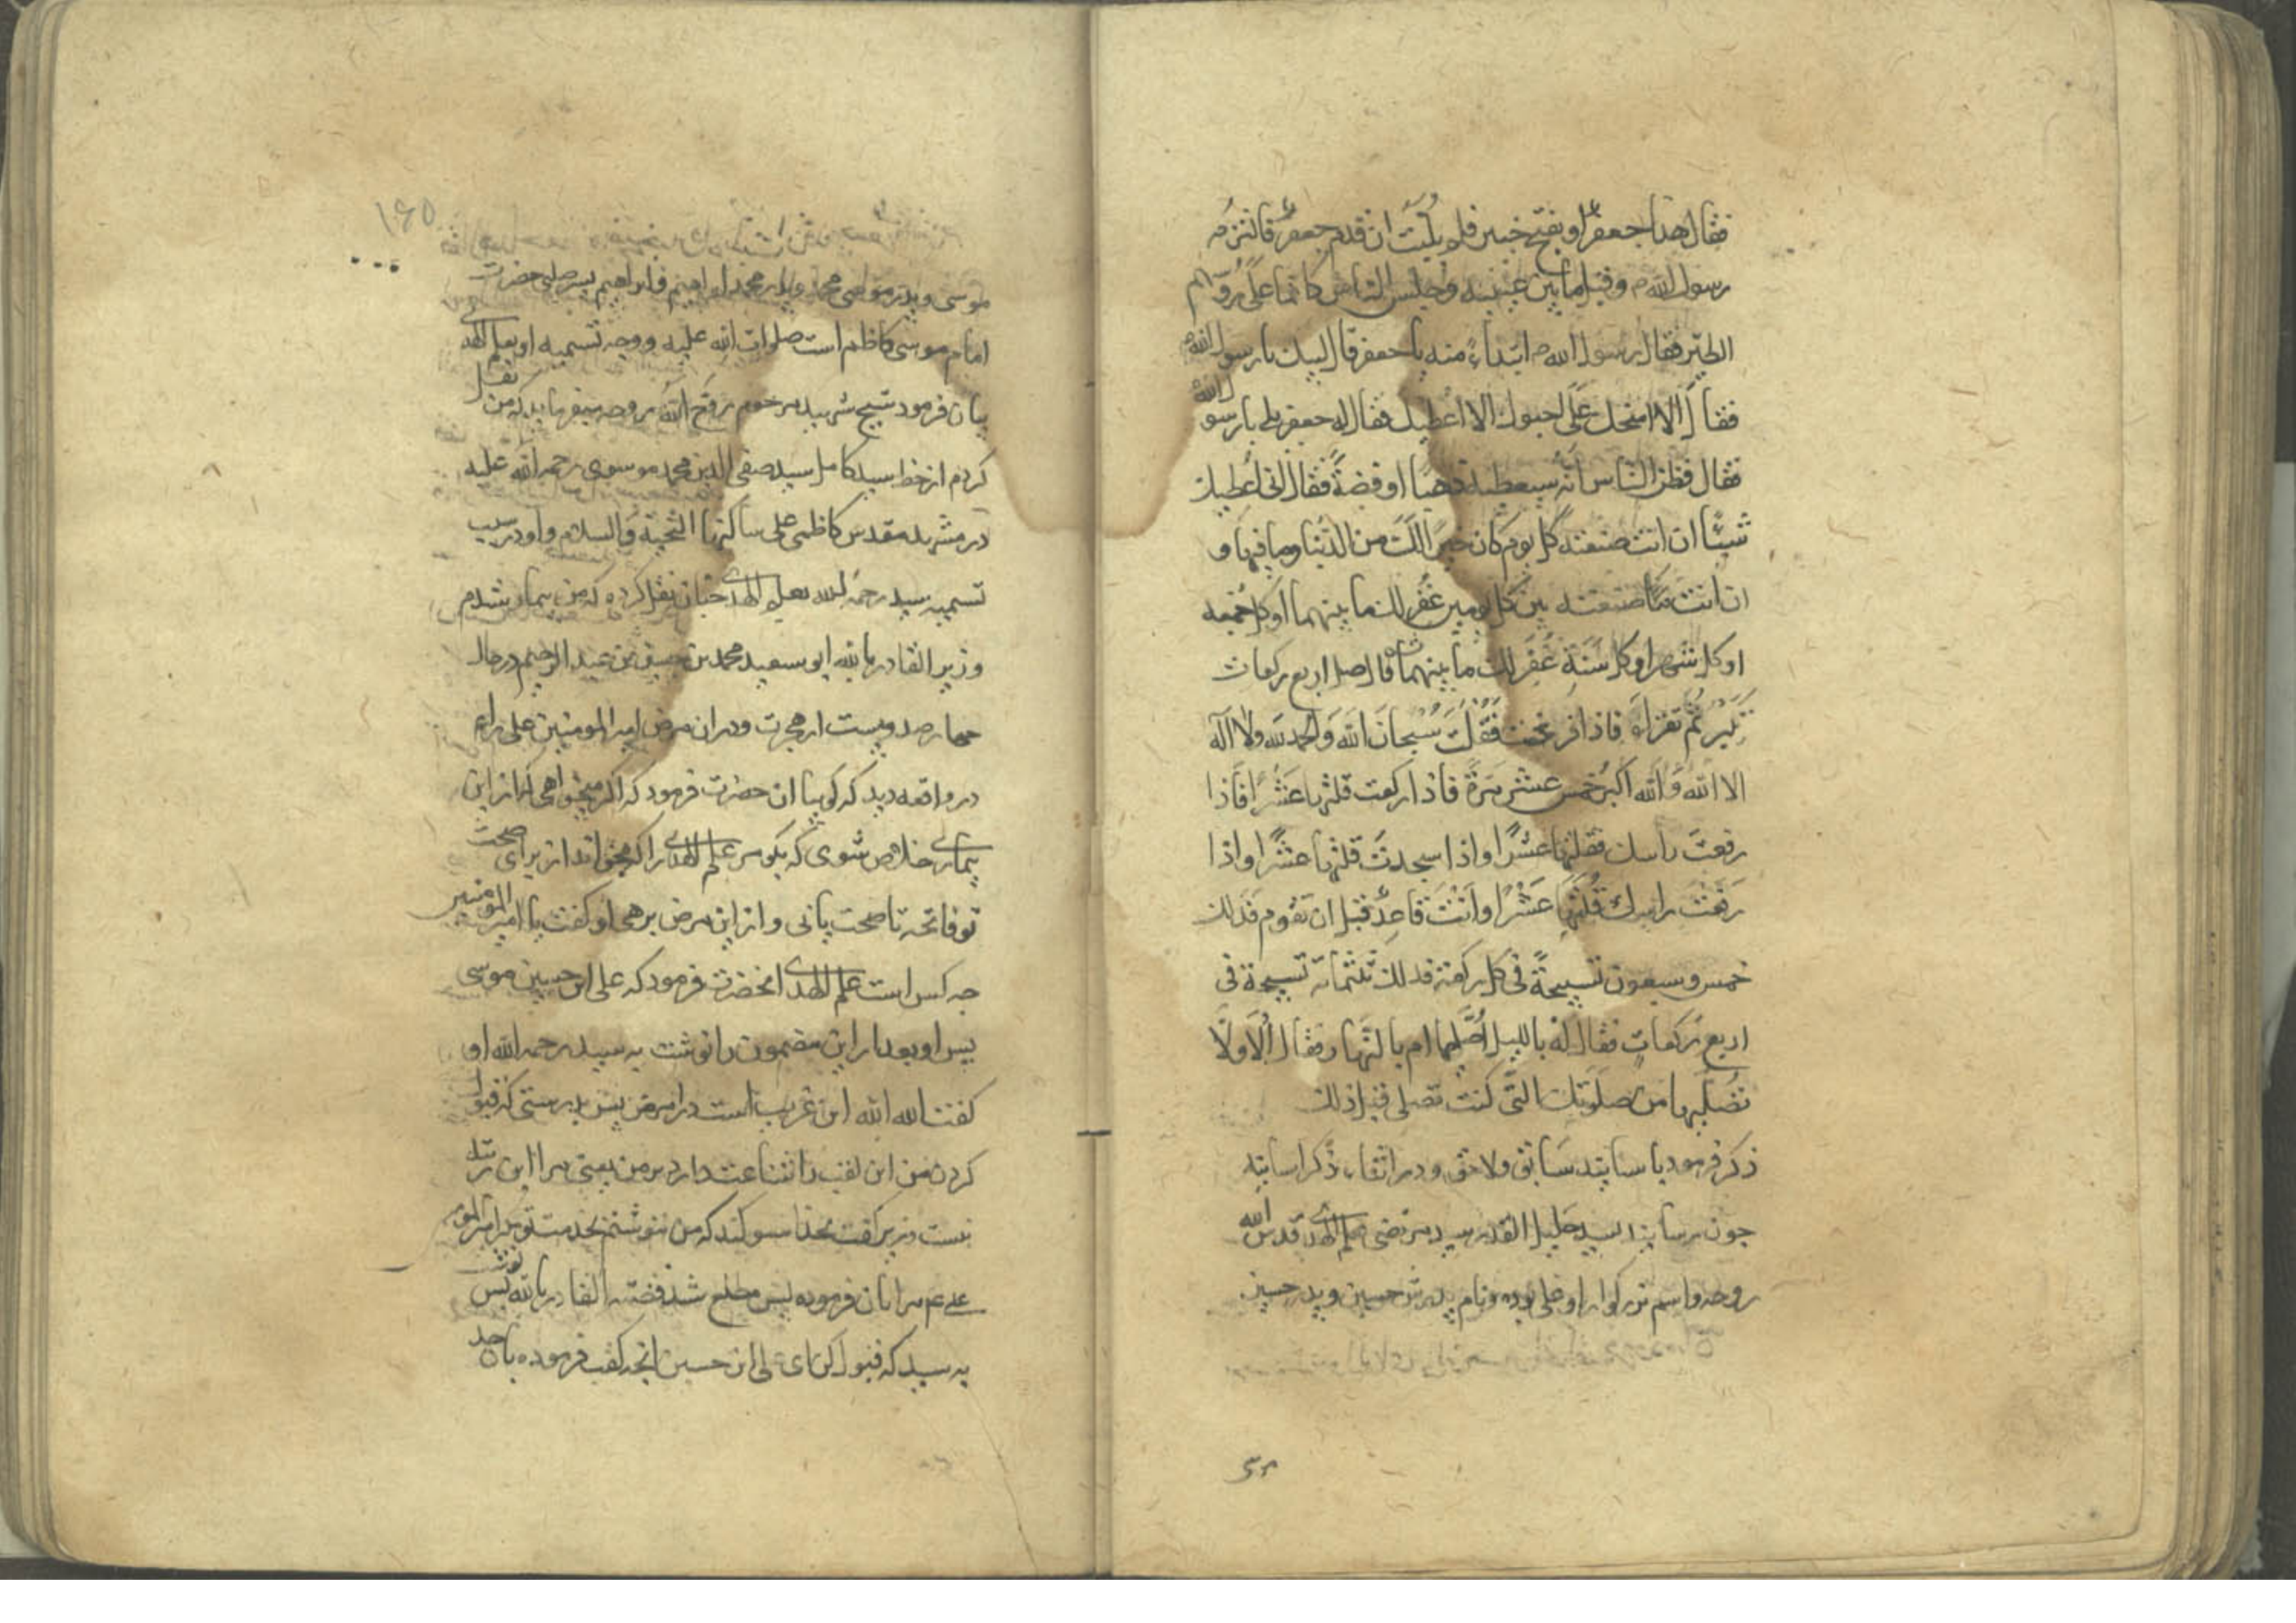 فقال هذا جعفر او بفتح خيبر فلم يلبث ان قدم جعفر فالتزمه
رسول الله ص وقبل ما بين عينيه وجلس الناس كانما على رؤسهم
الطير فقال رسول الله ص ابتداءً منه يا جعفر قال لبيك يا رسول الله
فقال ألا امنحك ألا احبوك الا اعطيك فقال له جعفر بلى يا رسول الله
فقال فظن الناس انه سيعطيه ذهبًا او فضةً فقال انى اعطيك
شيئًا ان انت صنعته كل يوم كان خيرًا لك من الدنيا وما فيها و
ان انت صنعته بين كل يومين غفر لك ما بينهما او كل جمعه
او كل شهر او كل سنة غفر لك ما بينهما قال صل اربع ركعات
تكبر ثم تقرا فاذا فرغت فقلت سبحان الله والحمد لله ولا اله
الا الله والله اكبر خمس عشر مرة فاذا ركعت قلتها عشرًا فاذا
رفعت راسك فقلتها عشرًا واذا سجدت قلتها عشرًا واذا
رفعت راسك قلتها عشرًا وانت قاعد قبل ان تقوم فذلك
خمس وسبعون تسبيحة في كل ركعة فذلك ثلثمائه تسبيحة في
اربع ركعات فقال له بالليل اصليها ام بالنهار فقال ألا ولا
تصليها من صلوتك التى كنت تصلى قبل ذلك
ذكر فرمود با سانيد سابق ولاحق ودر اثناء ذكر اسانيد
چون رسانيد سيد جليل القدر سيد مرتضى علم الهدى قدس الله
روحه واسم بزرگوار او على بوده ونام پدرش حسين وپدر حسين
موسى وپدر موسى محمد وپدر محمد ابراهيم وابراهيم پسر صلبى حضرت
امام موسى كاظم است صلوات الله عليه ووجه تسميه او بعلم الهدى
بيان فرمود شيخ شهيد مرحوم روّح الله روحه ميفرمايد كه من نقل
كردم از خط سيد كامل سيد صفى الدين محمد موسوى رحمه الله عليه
در مشهد مقدس كاظمى على ساكنها التحية والسلام واو در سبب
تسميه سيد رحمه لله بعلم الهدى چنان نقل كرده كه من بيمار شدم
وزير القادر بالله ابو سعيد محمد بن حسين بن عبد الرحيم در سال
چهار صد وبيست از هجرت ودران مرض امير المومنين على را ع
در واقعه ديد كه گويا ان حضرت فرمود كه اگر ميخواهى كه از اين
بيمارى خلاص شوى كه بگو مر علم الهدى را كه بخواند از براى صحت
تو فاتحه تا صحت يابى واز اين مرض برهى او گفت يا امير المومنين
چه كس است علم الهدى انحضرت فرمود كه على ابن حسين موسى
پس او بعد از اين مضمون را نوشت به سيد رحمه الله او
گفت الله الله اين غريب است در امر من پس بدرستى كه قبول
كردن من اين لقب را شناعت دارد بر من يعنى مرا اين رتبه
نيست وزير گفت بخدا سوگند كه من ننوشتم بخدمت تو مگر امير المومنين
على ع مرا بان فرموده پس مطلع شد قضيه القادر بالله پس نوشت
به سيد كه قبول كن اى على ابن حسين انچه لقب فرموده با جد